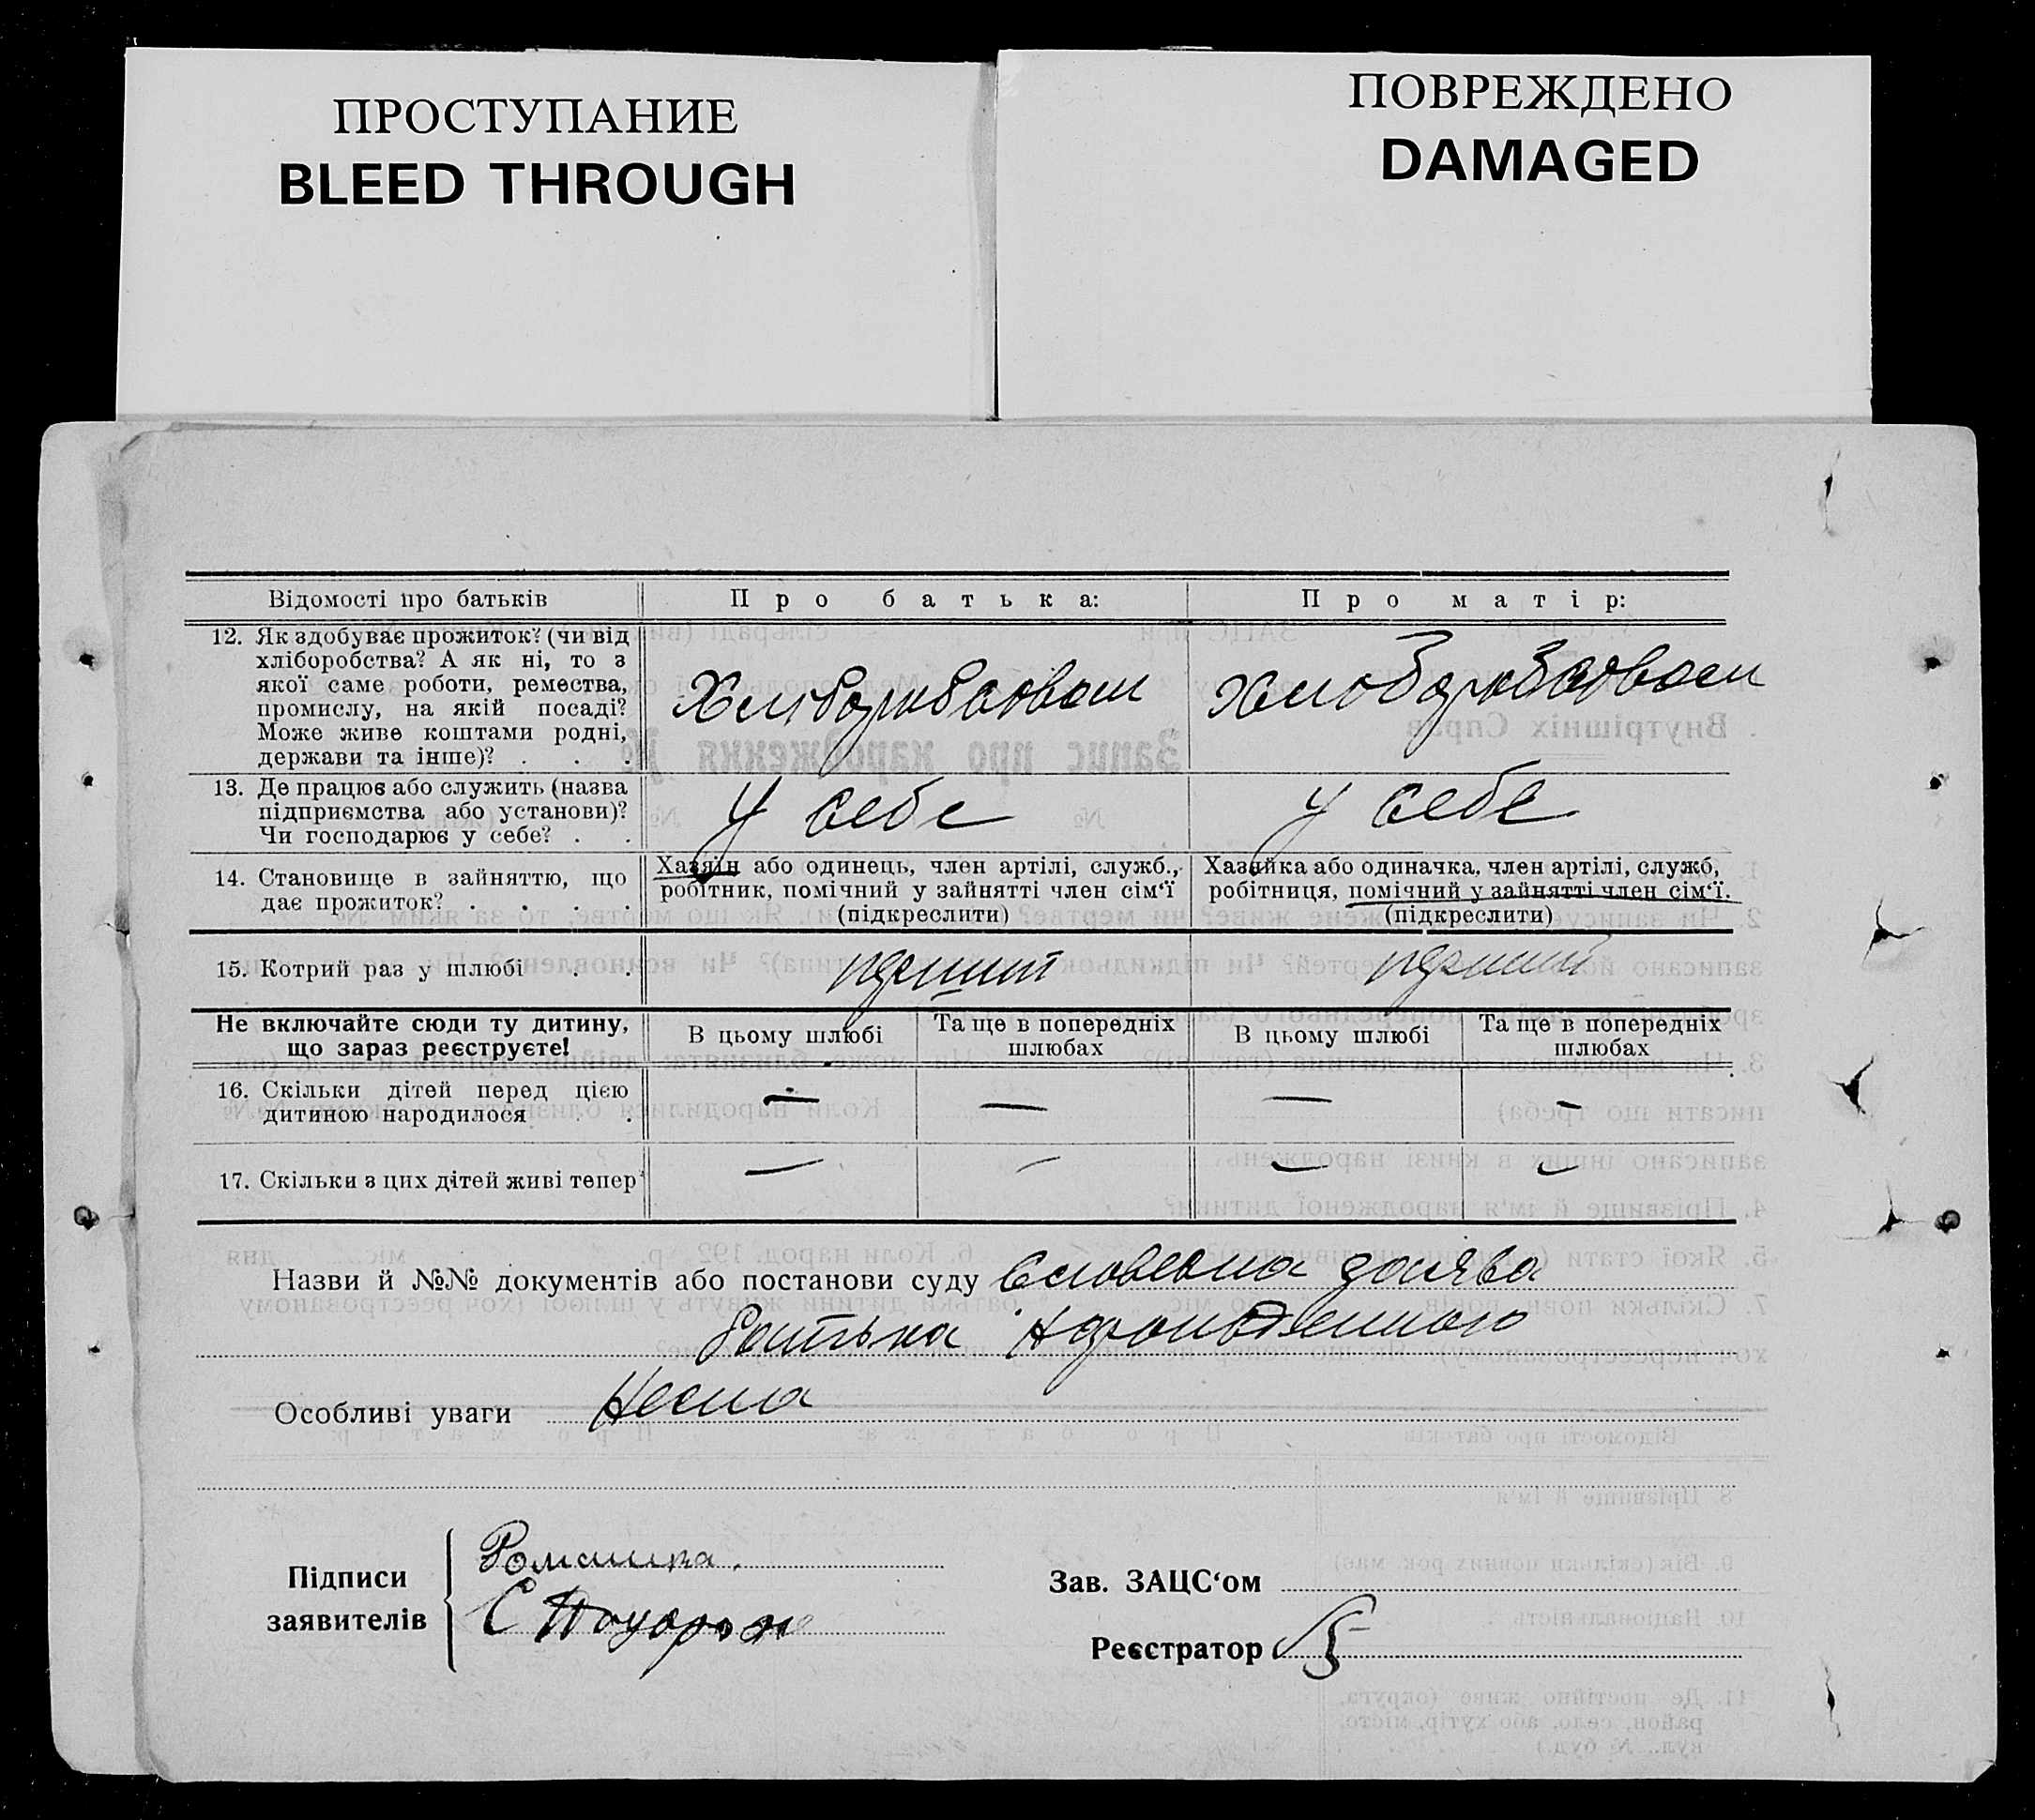 ПРОСТУПАНИЕ
BLEED THROUGH
ПОВРЕЖДЕНО
DAMAGED
Відомості про батьків
Про батька:
Про матір:
12. Як здобуває прожиток? (чи від
хліборобства? А як ні, то з
якої саме роботи, ремества,
промислу, на якій посаді?
Може живе коштами родні,
держави та інше)? . . .
Хліборобством
Хліборобством
13. Де працює або служить (назва
підприємства або установи)?
Чи господарює у себе? . .
У себе
У себе
14. Становище в зайняттю, що
дає прожиток? . . . .
Хазяїн або одинець, член артілі, служб.,
робітник, помічний у зайнятті член сім‘ї
(підкреслити)
Хазяйка або одиначка, член артілі, служб,
робітниця, помічний у зайнятті член сім‘ї.
(підкреслити)
15. Котрий раз у шлюбі . .
перший
перший
Не включайте сюди ту дитину,
що зараз реєструєте!
В цьому шлюбі
Та ще в попередніх
шлюбах
В цьому шлюбі
Та ще в попередніх
шлюбах
16. Скільки дітей перед цією
дитиною народилося .
— — — —
17. Скільки з цих дітей живі тепер
— — — —
Назви й №№ документів або постанови суду Словесна заява
батька
Особливі уваги
Підписи
заявителів
Зав. ЗАЦС‘ом
Реєстратор